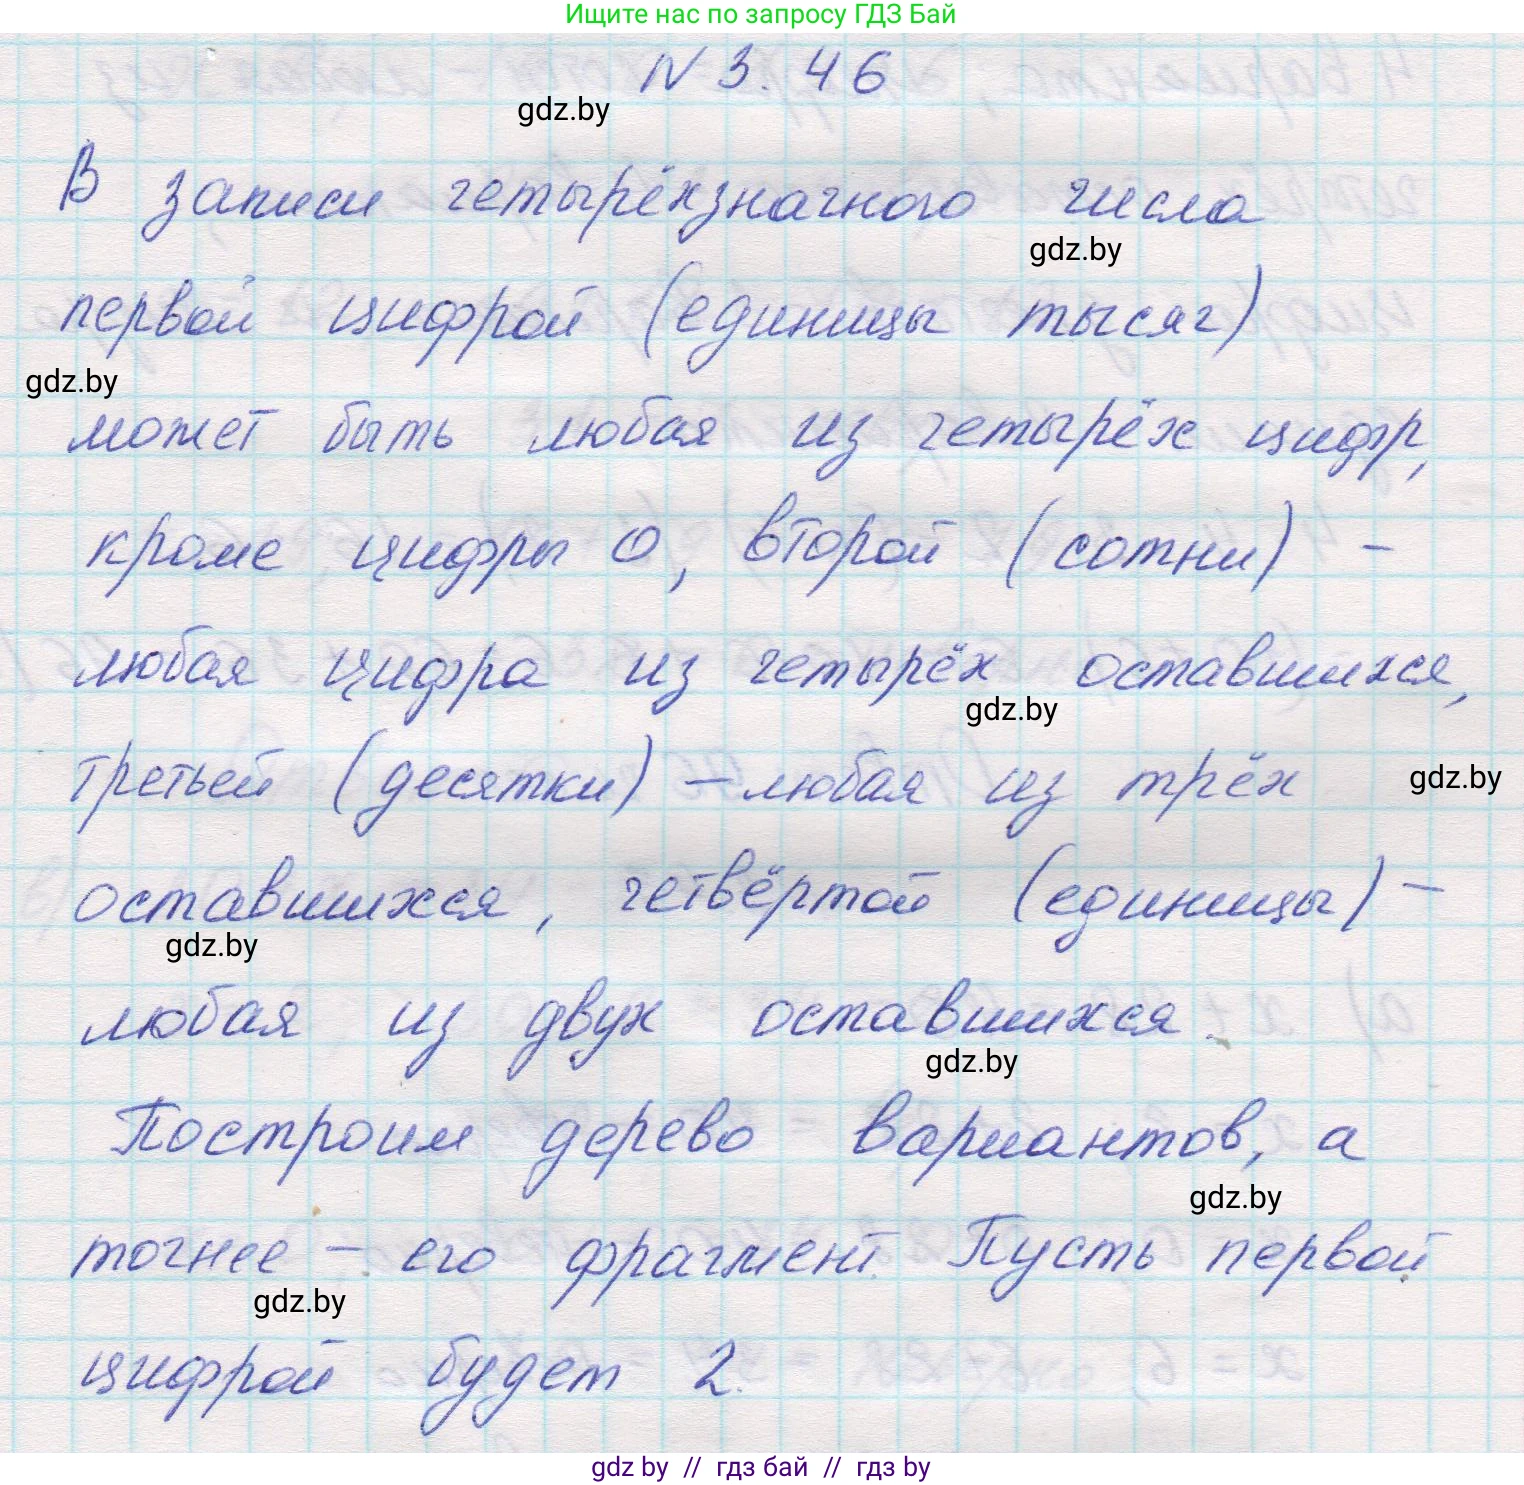 Ищите нас по запросу ГДЗ Бай
N 3. 46
gdz.by
В записи четырёхзначного числа
gdz.by
первой цифрой (единицы тысяч)
gdz.by
может быть любая из четырёх цифр,
кроме цифры 0, второй (сотни) –
любая цифра из четырёх оставшихся,
gdz.by
третьей (десятки) – любая из трёх
gdz.by
оставшихся, четвёртой (единицы) –
gdz.by
любая из двух оставшихся.
gdz.by
Построим дерево вариантов, а
gdz.by
точнее – его фрагмент. Пусть первой
gdz.by
цифрой будет 2.
gdz by // гдз бай // гдз by